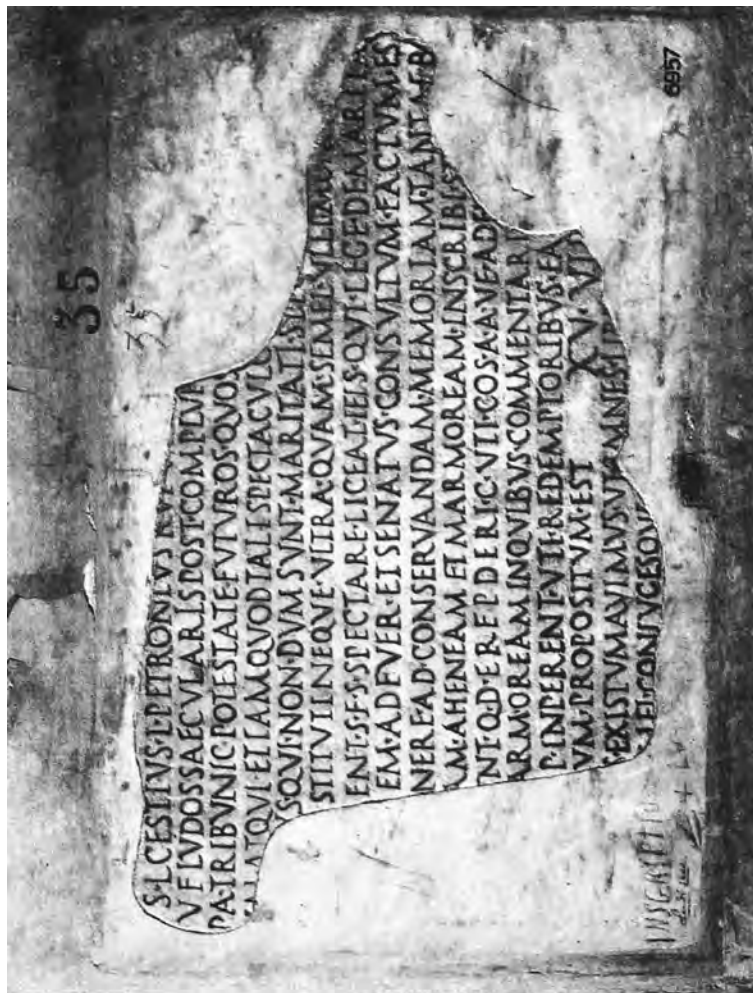 35
35
6957
S·L·CESTIVS·L·PETRONIVS·RVF
V·F·LVDOS SAECVLARIS POST·COMPLVR
PA·TRIBVNIC·POTESTATE·FVTVROS·QVOS
LAT QVI·ETIAM QVOD TALI SPECTACVLO
S QVI·NON·DVM SVNT·MARITATI·S
STITVIT NEQVE·VLTRA·QVAM·SEMEL VLLI MO
ENT·S·F·S·SPECTARE·LICEAT·IEIS QVI·LEGE·DE MARITA
EM·A·D·F·VER·ET SENATVS·CONSVLTVM·FACTVM·ES
NERE AD·CONSERVANDAM·MEMORIAM·TANTAE·B
M·AHENEAM·ET MARMOREAM·INSCRIBI·S
NT·Q·D·E·R·F·P·D·E·R·I·C·VTI·COS·A·A·VE·ADF
ARMOREAM IN QVIBVS·COMMENTARI
P·INPERENT·VTI·REDEMPTORIBVS·EA
VM·PROPOSITVM·EST XV·VI
S·EXISTVMAVIMVS·VT OMNES LIB
S ET CONIVGESQV
INSCRIPTIO